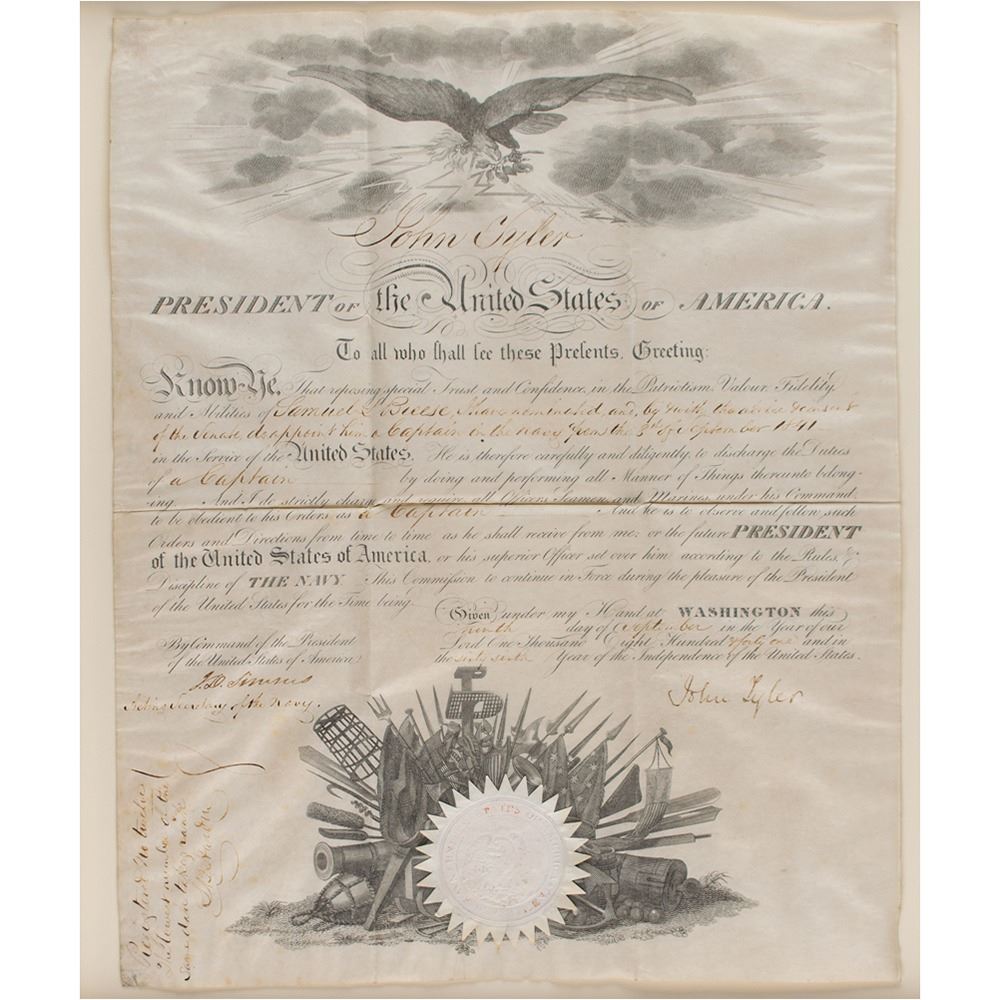 John Tyler
PRESIDENT OF the United States OF AMERICA.
To all who shall see these Presents, Greeting:
Know Ye, That reposing special Trust and Confidence in the Patriotism, Valour, Fidelity,
and Abilities of Samuel L Breese, I have nominated, and, by & with the advice & consent
of the Senate, do appoint him a Captain in the Navy from the 8th of September 1841
in the Service of the United States. He is therefore carefully and diligently to discharge the Duties
of a Captain by doing and performing all Manner of Things thereunto belong-
ing. And I do strictly charge and require all Officers Seamen and Marines under his Command
to be obedient to his Orders as a Captain And he is to observe and follow such
Orders and Directions from time to time as he shall receive from me; or the future PRESIDENT
of the United States of America, or his superior Officer set over him according to the Rules, &
Discipline of THE NAVY. This Commission to continue in Force during the pleasure of the President
of the United States for the Time being.
Given under my Hand at WASHINGTON this
day of September in the Year of our
Lord One Thousand Eight Hundred & forty one and in
the sixty sixth Year of the Independence of the United States.
By Command of the President
of the United States of America
J. D. Simms
Acting Secretary of the Navy.
John Tyler
Registered No twelve